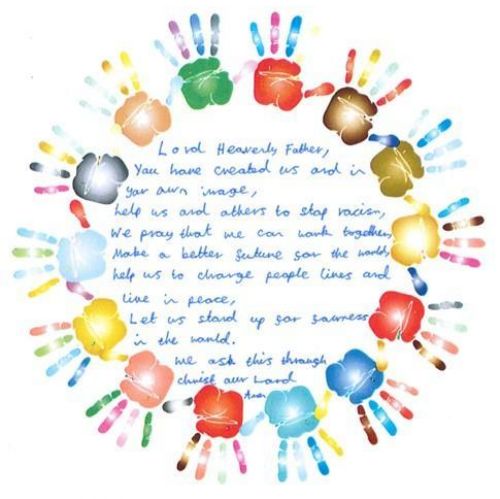 Lord Heavenly Father,
You have created us and in
your own image,
help us and others to stop racism,
We pray that we can work together,
Make a better future for the world,
help us to change people lives and
live in peace,
Let us stand up for fairness
in the world.
We ask this through
christ our Lord
Amen